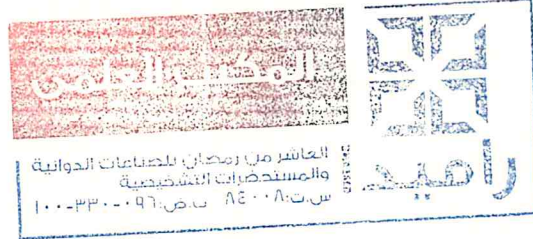 المكتب العلمى
راميدا
العاشر من رمضان للصناعات الدوائية
والمستحضرات التشخيصية
س.ت: ٨٤٠٠٨ ب.ض: ٠٩٦-٣٣٠-١٠٠